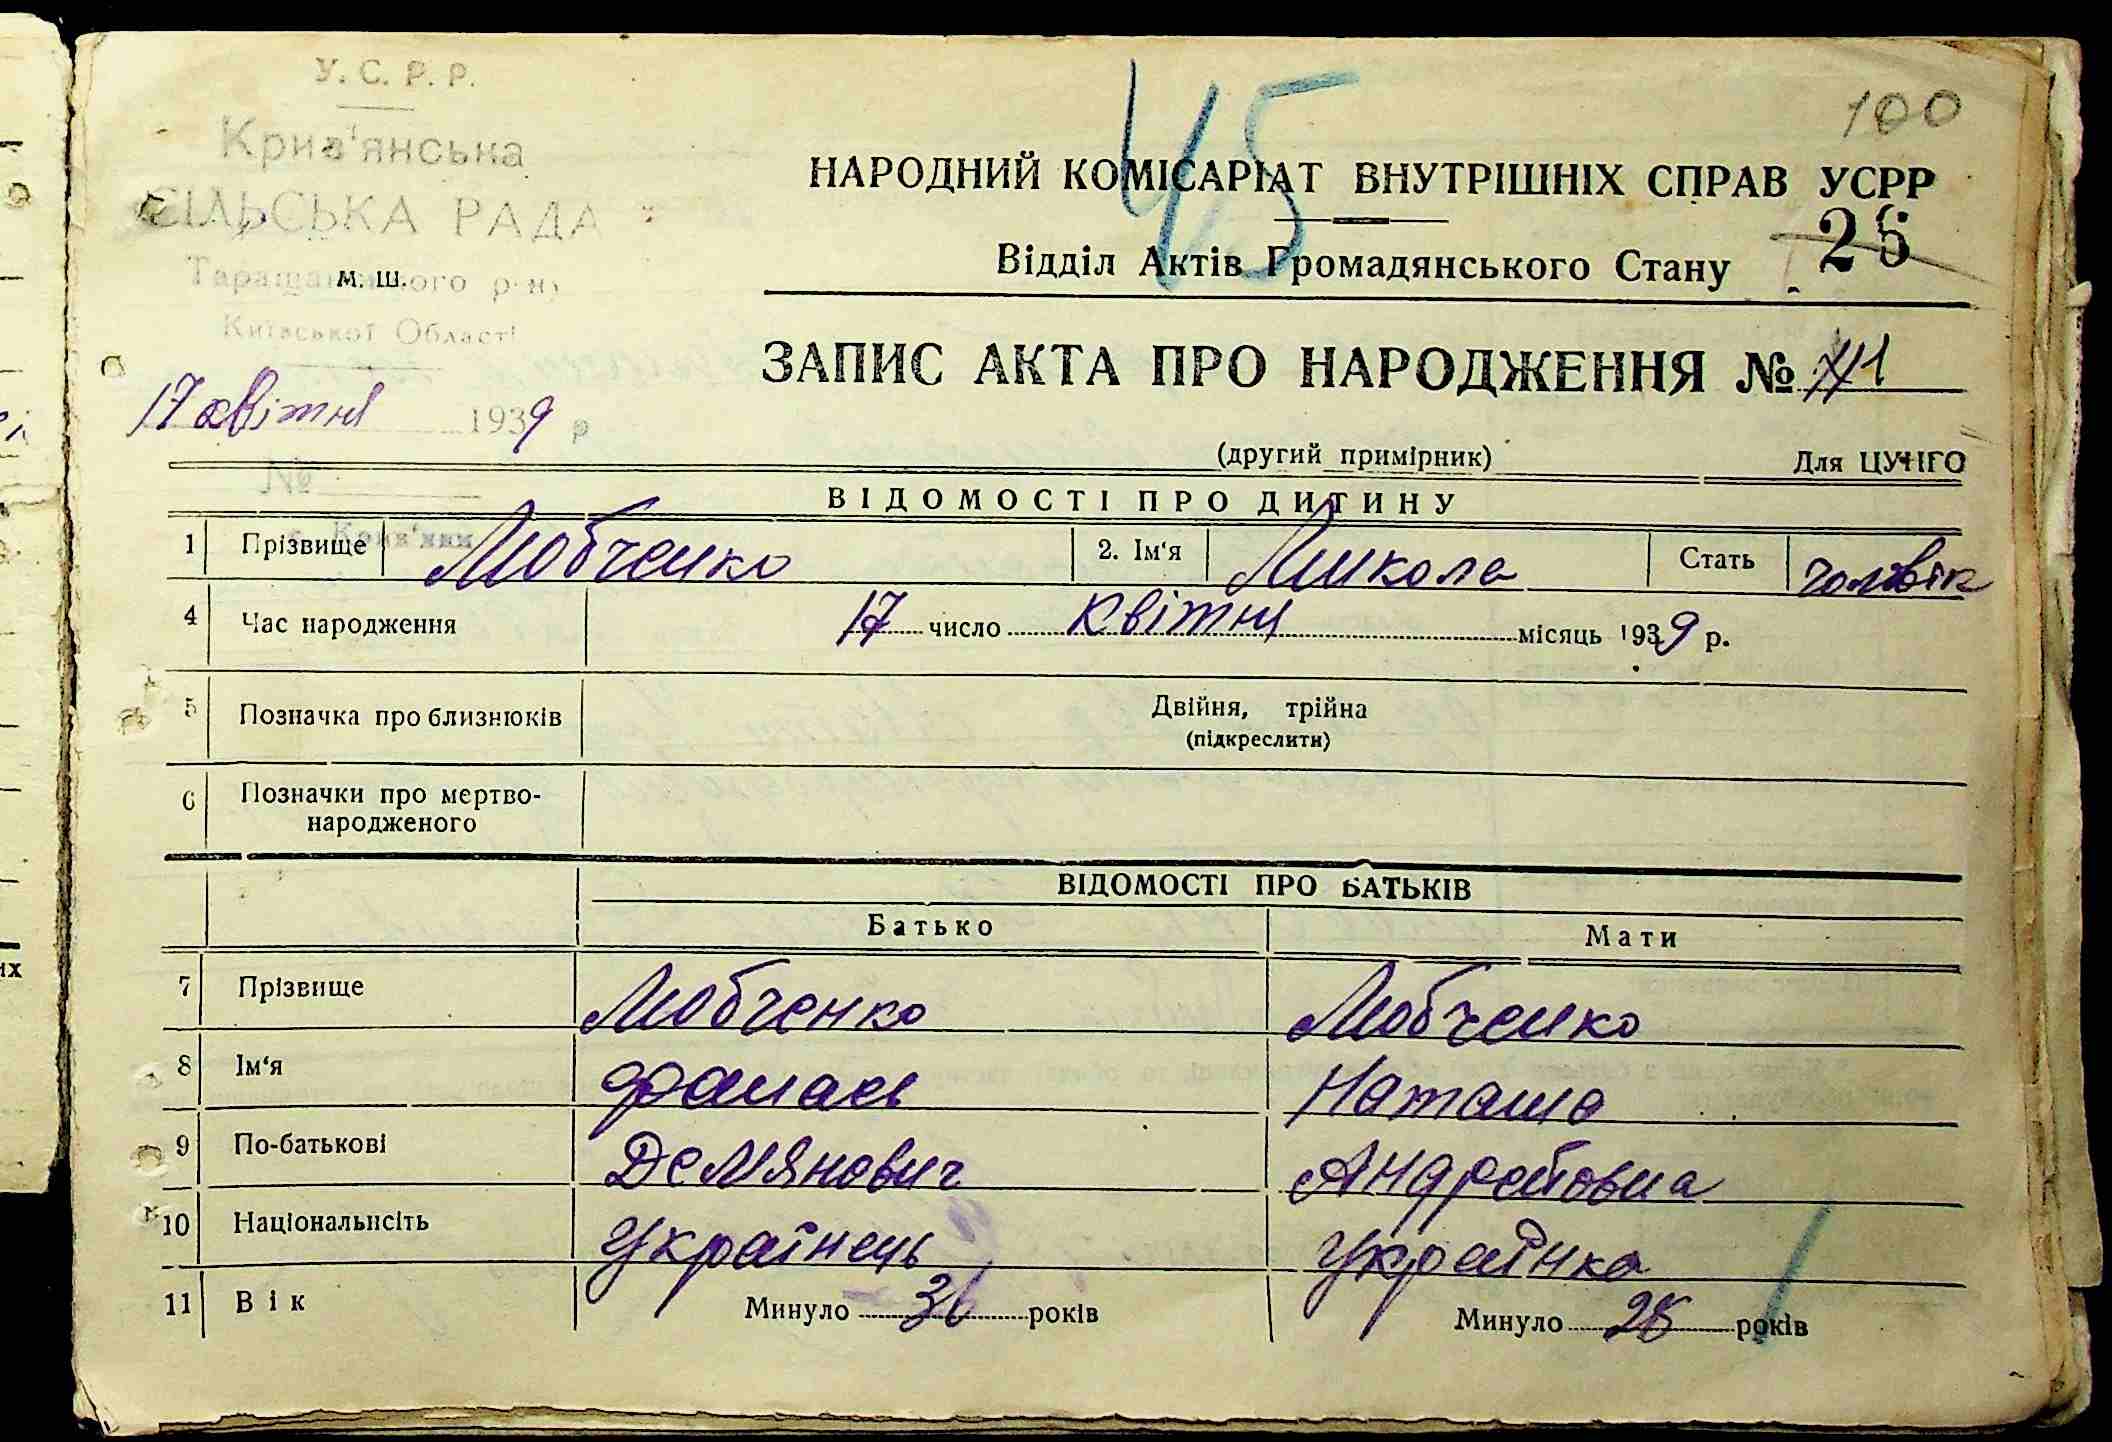 У. С. Р. Р.
Крив'янська
СІЛЬСЬКА РАДА
Таращанського р-ну
м. ш.
Київської Області
17 квітня 1939 р
№
45
100
НАРОДНИЙ КОМІСАРІАТ ВНУТРІШНІХ СПРАВ УСРР
Відділ Актів Громадянського Стану
ЗАПИС АКТА ПРО НАРОДЖЕННЯ №
(другий примірник) Для ЦУНГО
ВІДОМОСТІ ПРО ДИТИНУ
1 Прізвище Любченко 2. Ім'я Микола Стать чоловік
4 Час народження 17 число квітня місяць 1939 р.
5 Позначка про близнюків Двійня, трійна
(підкреслити)
6 Позначки про мертво-
народженого
ВІДОМОСТІ ПРО БАТЬКІВ
Батько Мати
7 Прізвище Любченко Любченко
8 Ім'я Наташа
9 По-батькові Демянович Андрейовна
10 Національність Українець Українка
11 Вік Минуло років Минуло років